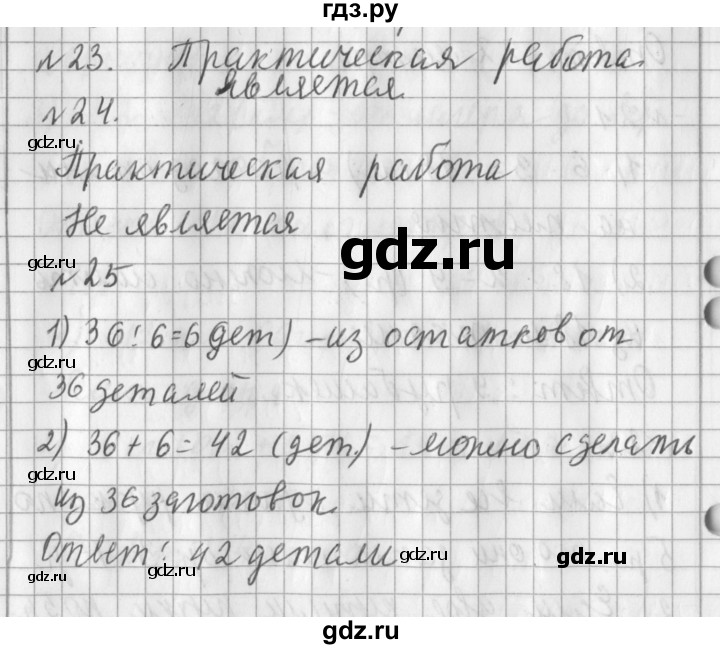 гдз.ру
№23. Практическая работа.
является.
№24.
gdz.ru
Практическая работа
Не является
gdz.ru
gdz.ru
№25
1) 36:6=6 дет) – из остатков от
gdz.ru
36 деталей
2) 36+6=42 (дет.) – можно сделать
gdz.ru
из 36 заготовок.
Ответ: 42 детали
gdz.ru
gdz.ru
gdz.ru
gdz.ru
gdz.ru
gdz.ru